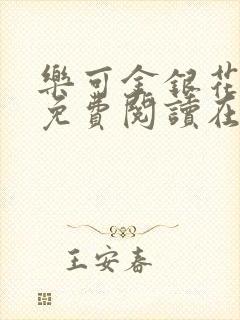 樂可金銀花
免費閱讀在
王安春